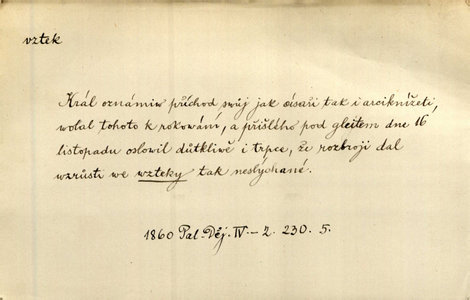 vztek
Král oznámiw příchod swůj jak císaři tak i arciknížeti,
wolal tohoto k rokowání, a přišlého pod gleitem dne 16
listopadu oslowil důtkliwě i trpce, že rozbroji dal
wzrůsti we wzteky tak neslýchané.
1860 Pal. Děj. IV - 2. 230. 5.